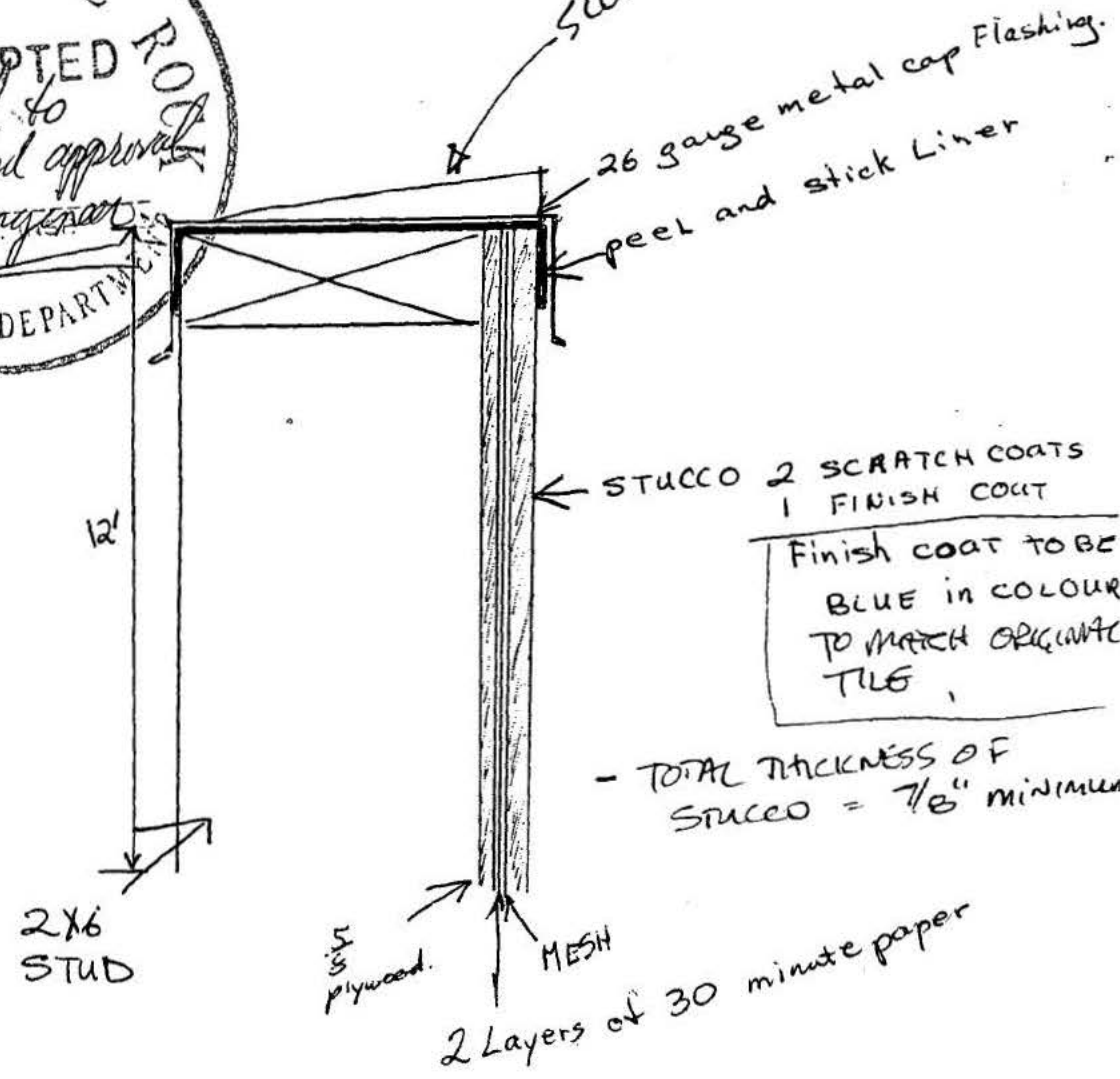 PTED
ROCK
to
approval
DEPARTMEN
26 gauge metal cap Flashing.
peel and stick Liner
12'
STUCCO 2 SCRATCH COATS
1 FINISH COAT
Finish COAT TO BE
BLUE in COLOUR
TO MATCH ORIGINAL
TILE
- TOTAL THICKNESS OF
STUCCO = 7/8" MINIMUM
2X6
STUD
5/8
plywood.
MESH
2 Layers of 30 minute paper